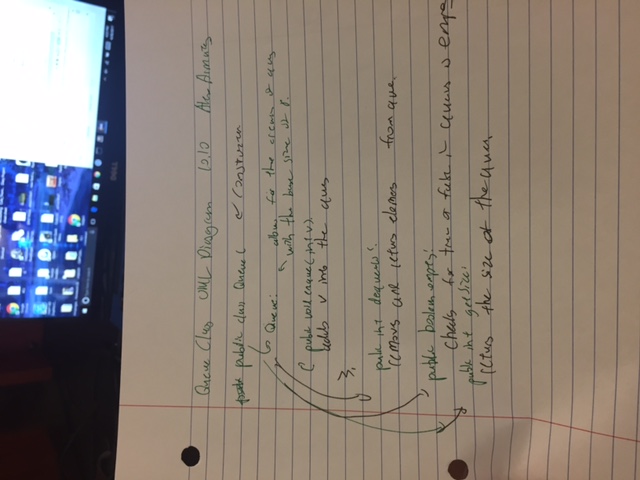 DELL
Queue Class UML Diagram 10.10 Alex
public class Queue {
Queue: allows for the of
with the base size of 8.
public void enqueue(int v).
adds v into the queue
},
public int dequeue
removes and returns elements from queue.
public boolean empty:
Checks for true or false if queue is empty
public int getSize:
returns the size of the queue.